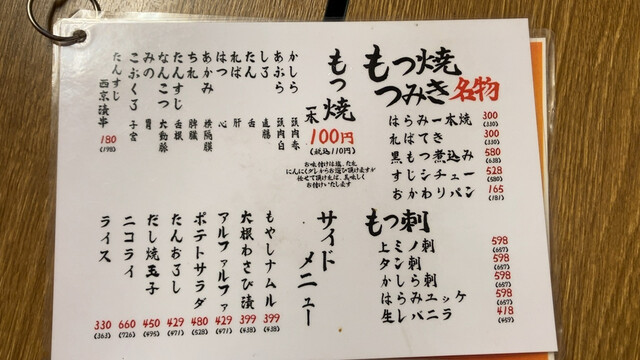 もつ焼
つみき 名物
はらみ一本焼 300 (330)
ればてき 300 (330)
黒もつ煮込み 580 (638)
すじシチュー 528 (580)
おかわりパン 165 (181)
もつ刺
上ミノ刺 598 (657)
タン刺 598 (657)
かしら刺 598 (657)
はらみユッケ 598 (657)
生レバニラ 418 (459)
もつ焼 一本 100円
(税込110円)
お味付けは塩、たれ
にんにくダレからお選び頂けますが
任せて頂ければ、美味しく
お付けいたします
かしら 頭肉赤
あぶら 頭肉白
しろ 直腸
たん 舌
れば 肝
はつ 心
あかみ 横隔膜
ちれ 脾臓
たんすじ 舌根
なんこつ 大動脈
みの 胃
こぶくろ 子宮
たんすじ
西京漬串 180 (198)
サイドメニュー
もやしナムル 399 (438)
大根わさび漬 399 (438)
アルファルファ 429 (471)
ポテトサラダ 480 (528)
たんおろし 429 (471)
だし焼玉子 450 (495)
ニコライ 660 (726)
ライス 330 (363)